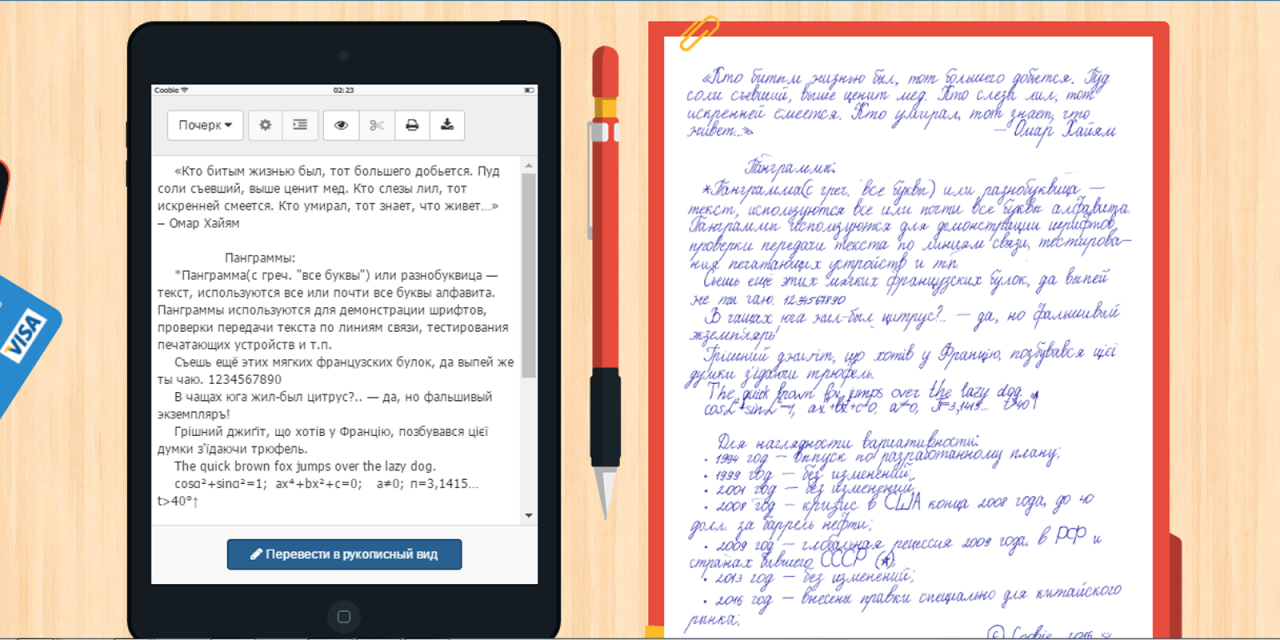 Coobie 02:23
Почерк
«Кто битым жизнью был, тот большего добьется. Пуд
соли съевший, выше ценит мед. Кто слезы лил, тот
искренней смеется. Кто умирал, тот знает, что живет...»
– Омар Хайям
Панграммы:
*Панграмма(с греч. "все буквы") или разнобуквица —
текст, используются все или почти все буквы алфавита.
Панграммы используются для демонстрации шрифтов,
проверки передачи текста по линиям связи, тестирования
печатающих устройств и т.п.
Съешь ещё этих мягких французских булок, да выпей же
ты чаю. 1234567890
В чащах юга жил-был цитрус?.. — да, но фальшивый
экземпляръ!
Грішний джиґіт, що хотів у Францію, позбувався цієї
думки з'їдаючи трюфель.
The quick brown fox jumps over the lazy dog.
cosα²+sinα²=1; ax⁴+bx²+c=0; a≠0; π=3,1415...
t>40°↑
Перевести в рукописный вид
VISA
«Кто битым жизнью был, тот большего добьется. Пуд
соли съевший, выше ценит мед. Кто слезы лил, тот
искренней смеется. Кто умирал, тот знает, что
живет...» — Омар Хайям
Панграммы:
*Панграмма(с греч. "все буквы") или разнобуквица —
текст, используются все или почти все буквы алфавита.
Панграммы используются для демонстрации шрифтов,
проверки передачи текста по линиям связи, тестирова-
ния печатающих устройств и т.п.
Съешь ещё этих мягких французских булок, да выпей
же ты чаю. 1234567890
В чащах юга жил-был цитрус?.. — да, но фальшивый
экземпляръ!
Грішний джиґіт, що хотів у Францію, позбувався цієї
думки з'їдаючи трюфель.
The quick brown fox jumps over the lazy dog.
cosα²+sinα²=1; ax⁴+bx²+c=0; a≠0; π=3,1415... t>40°↑
Для наглядности вариативности:
• 1994 год — выпуск по разработанному плану;
• 1999 год — без изменений;
• 2001 год — без изменений;
• 2008 год — кризис в США конца 2008 года, до 40
долл. за баррель нефти;
• 2009 год — глобальная рецессия 2009 года, в РФ и
странах бывшего СССР (*);
• 2013 год — без изменений;
• 2016 год — внесены правки специально для китайского
рынка.
© Coobie